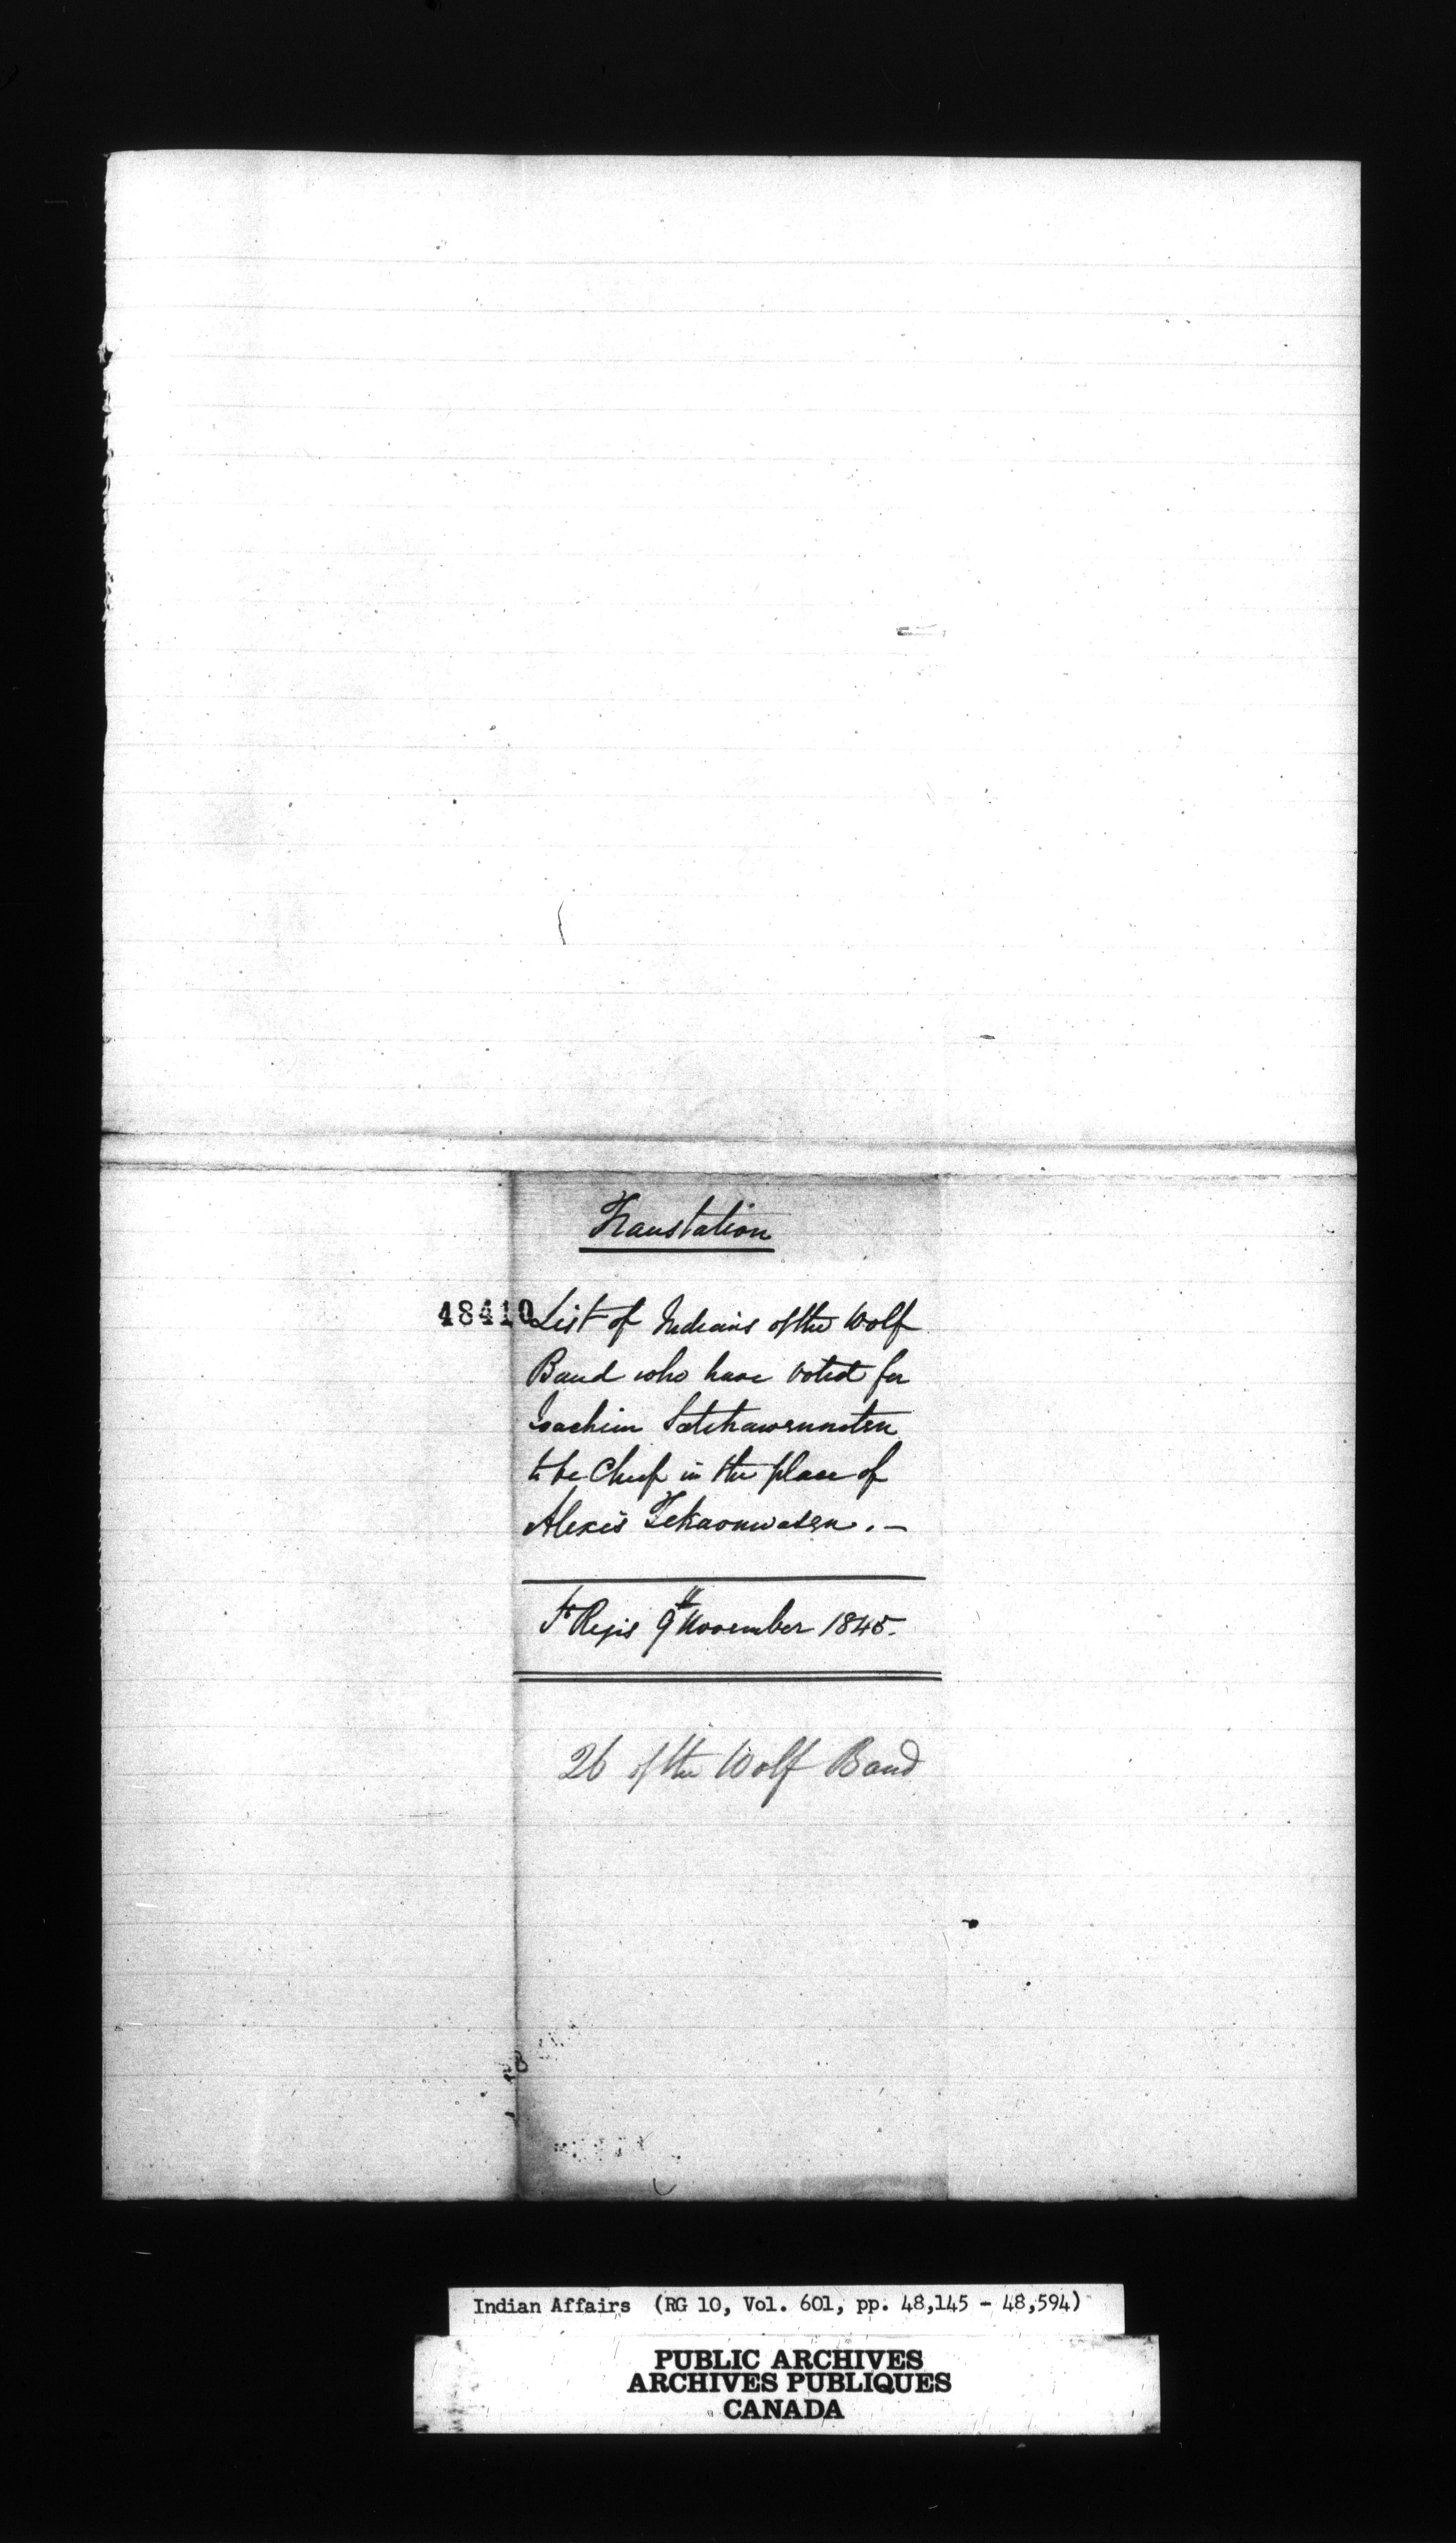 Translation
48410
List of Indians of the Wolf
Band who have voted for
Joachim Satehawennoten
to be Chief in the place of
Alexis Tekaonwasen. —
St Regis 9th November 1845.
26 of the Wolf Band
Indian Affairs (RG 10, Vol. 601, pp. 48,145 - 48,594)
PUBLIC ARCHIVES
ARCHIVES PUBLIQUES
CANADA